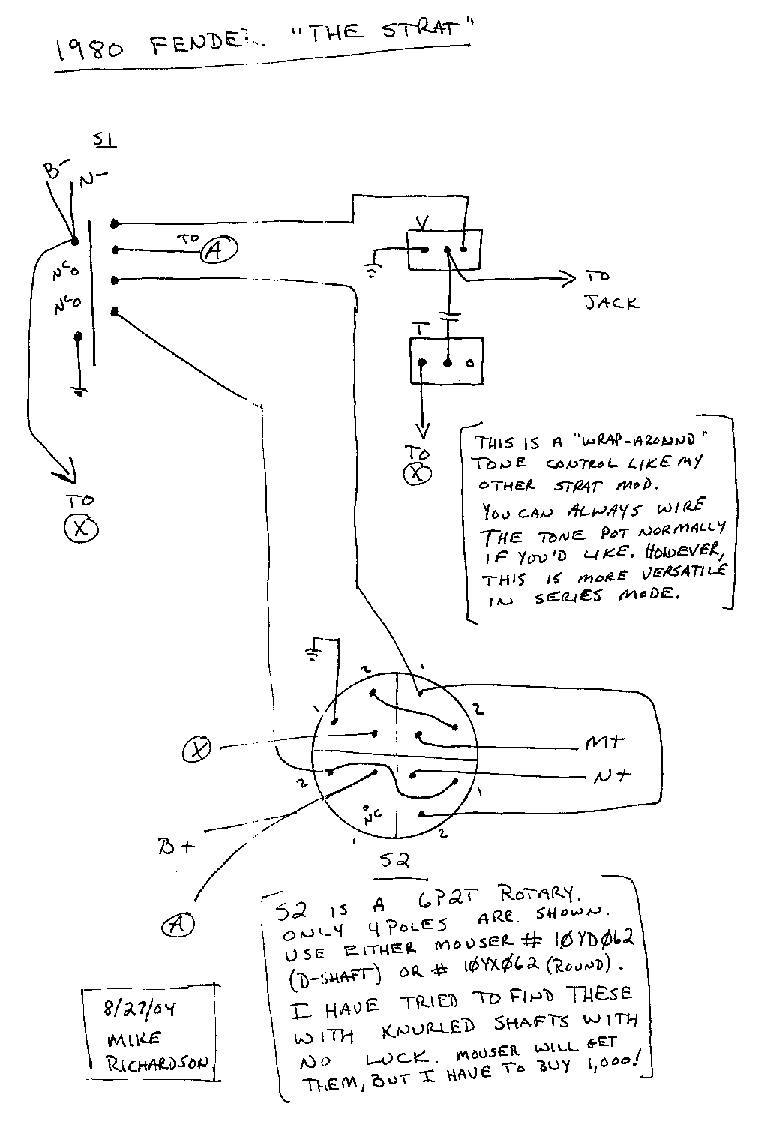 1980 FENDER "THE STRAT"
S1
B-
N-
TO
A
NC
NC
V
TO
JACK
T
TO
X
TO
X
THIS IS A "WRAP-AROUND"
TONE CONTROL LIKE MY
OTHER STRAT MOD.
YOU CAN ALWAYS WIRE
THE TONE POT NORMALLY
IF YOU'D LIKE. HOWEVER,
THIS IS MORE VERSATILE
IN SERIES MODE.
2
1
1
2
X
M+
N+
2
1
NC
B+
1
2
A
S2
S2 IS A 6P2T ROTARY.
ONLY 4 POLES ARE SHOWN.
USE EITHER MOUSER # 10YD062
(D-SHAFT) OR # 10YX062 (ROUND).
I HAVE TRIED TO FIND THESE
WITH KNURLED SHAFTS WITH
NO LUCK. MOUSER WILL GET
THEM, BUT I HAVE TO BUY 1,000!
8/27/04
MIKE
RICHARDSON